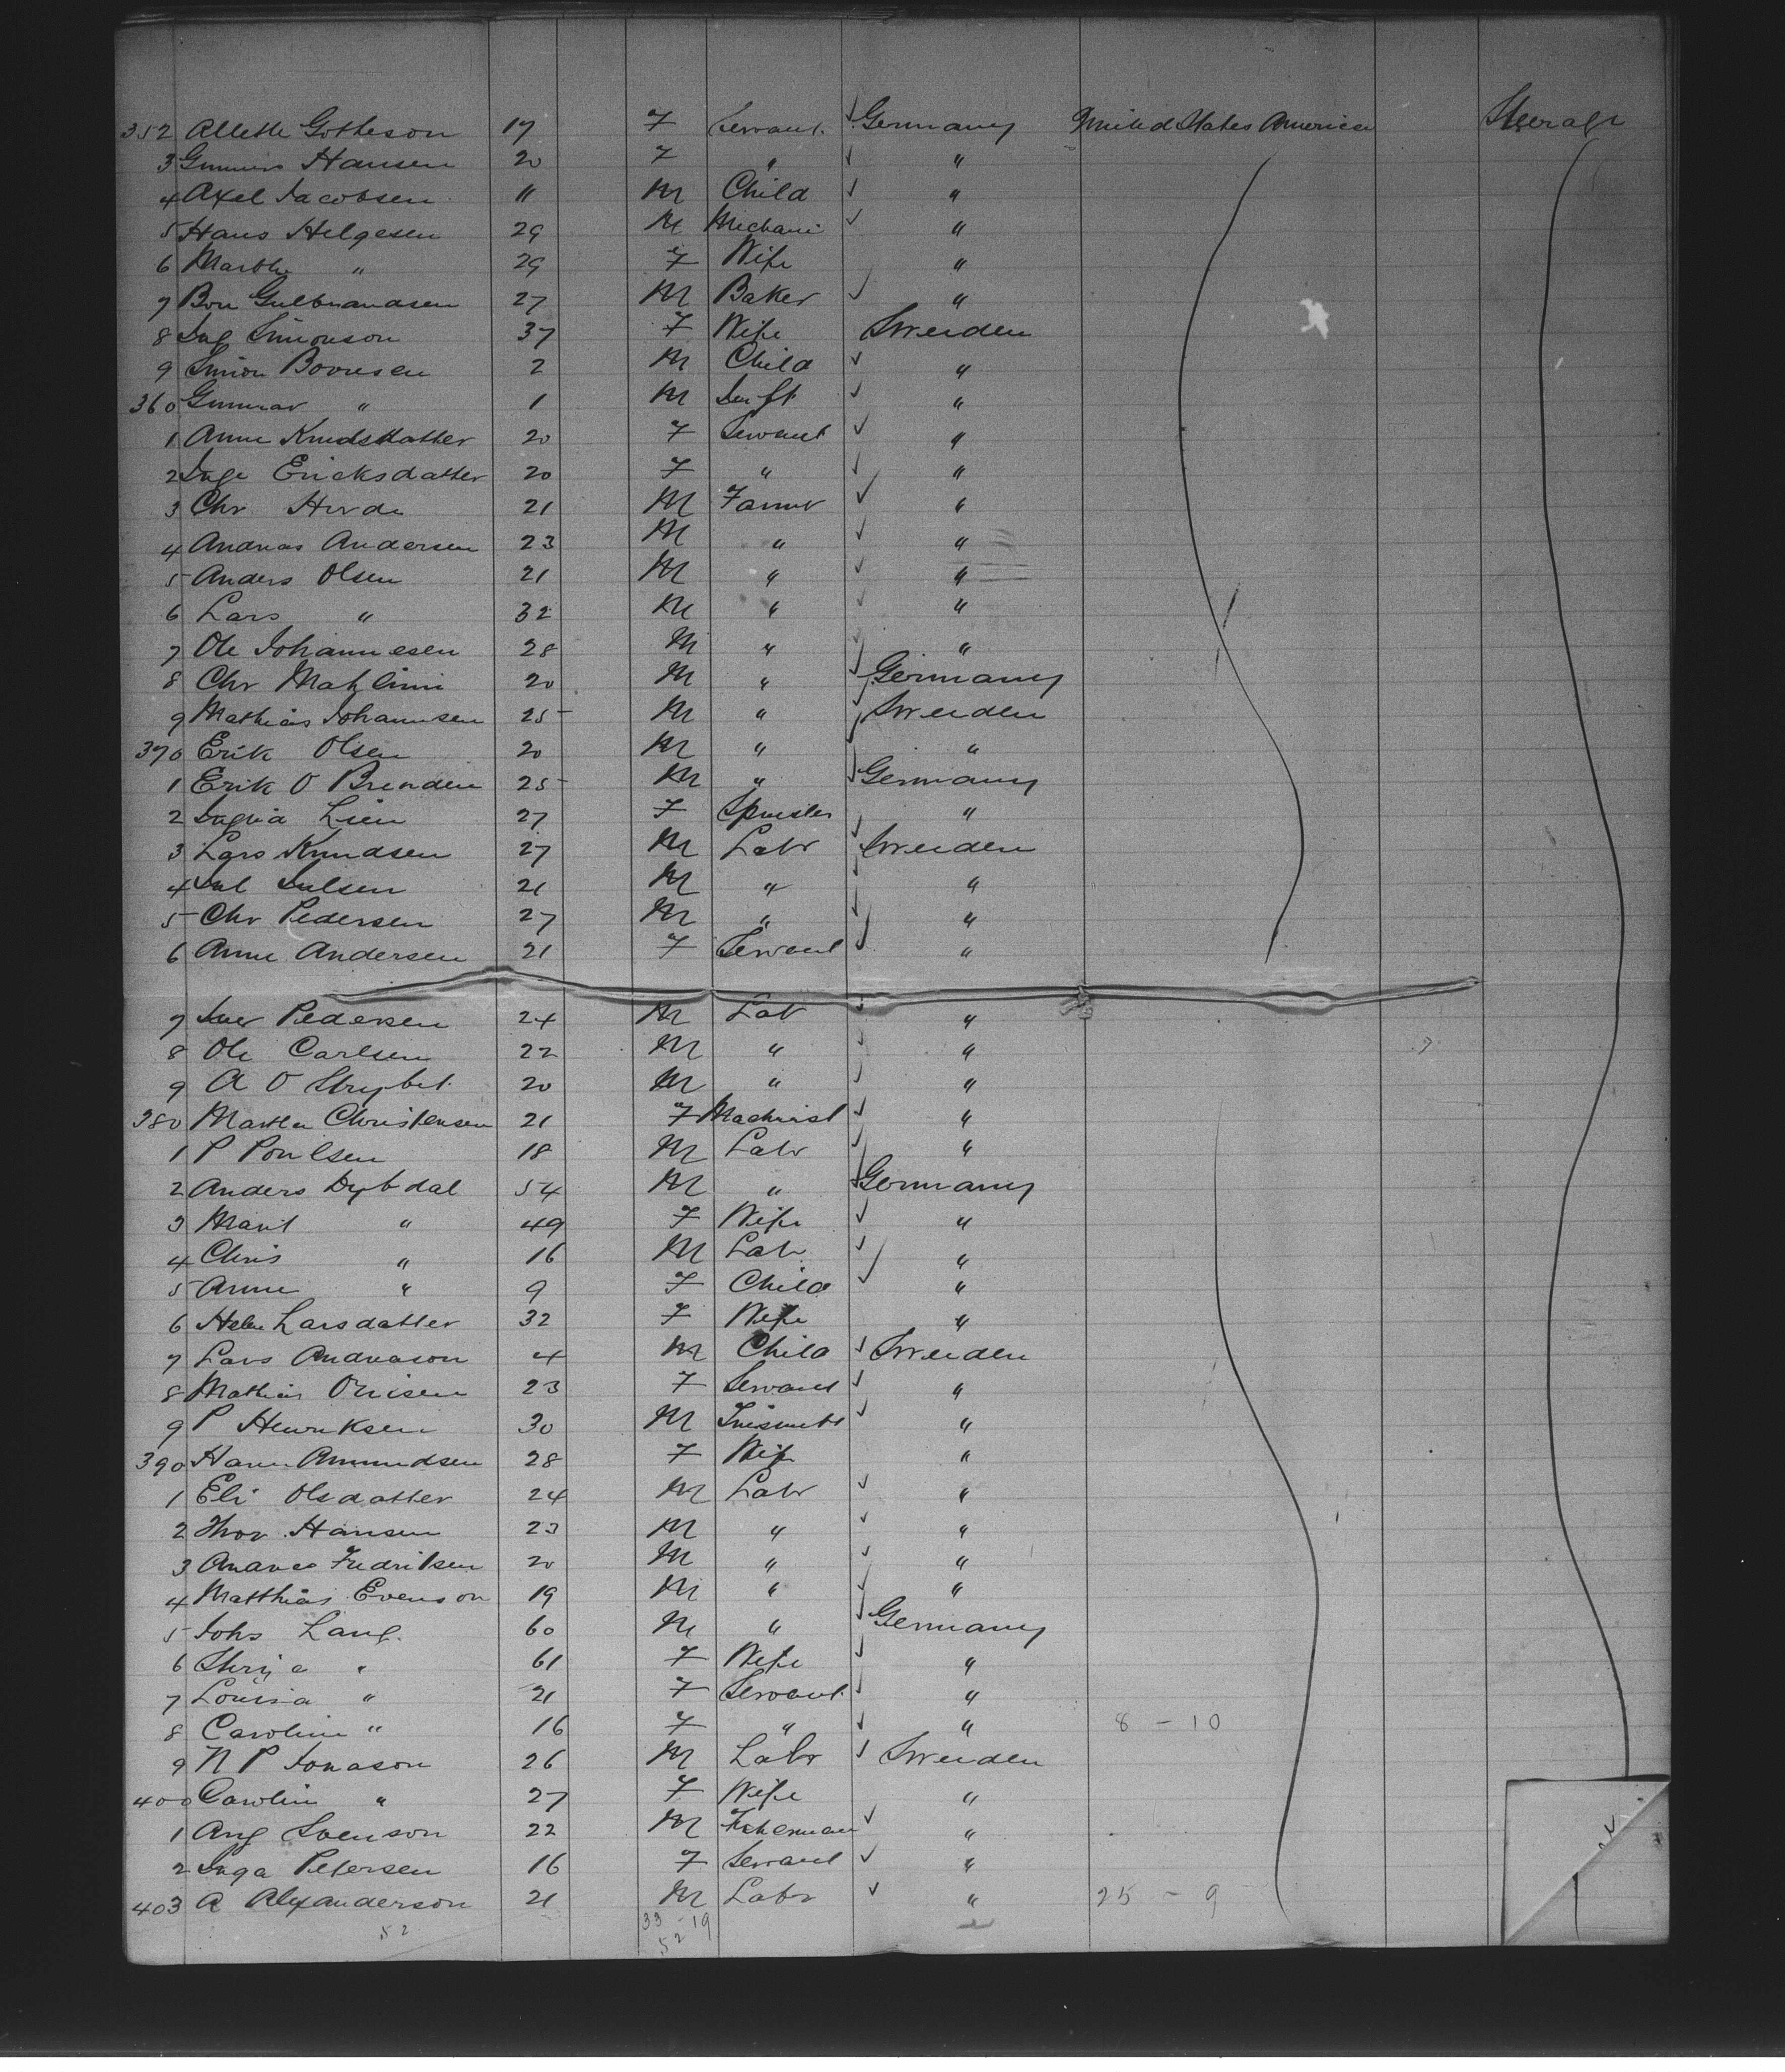 352 Allette Gotheson 17 F Servant Germany United States America Steerage
3 Gunnars Hansen 20 F " "
4 Axel Jacobsen 11 M Child "
5 Hans Helgesen 29 M Mechani "
6 Marthe " 29 F Wife "
7 Gulbrandsen 27 M Baker "
8 Simonson 37 F Wife Sweden
9 Simon Boonesen 2 M Child "
360 Gunnar " 1 M Inft "
1 Anne Knudsdatter 20 F Servant "
2 Inge Ericksdatter 20 F " "
3 Chr 21 M Farmer "
4 Andreas Andersen 23 M " "
5 Anders Olsen 21 M " "
6 Lars " 32 M " "
7 Ole Johannesen 28 M " "
8 Chr 20 M " Germany
9 Mathias Johannsen 25 M " Sweden
370 Erik Olsen 20 M " "
1 Erik O Brenden 25 M " Germany
2 Lien 27 F Spinster "
3 Lars Knudsen 27 M Labr Sweden
4 21 M " "
5 Chr Pedersen 27 M " "
6 Anne Andersen 21 F Servant "
7 Iver Pedersen 24 M Lab "
8 Ole Carlsen 22 M " "
9 A O 20 M " "
380 Martha Christensen 21 F Machinist "
1 P Poulsen 18 M Labr "
2 Anders Dybdal 54 M " Germany
3 Marit " 49 F Wife "
4 Chris " 16 M Lab "
5 Anne " 9 F Child "
6 Helen Larsdatter 32 F Wife "
7 Lars Andreason 4 M Child Sweden
8 Mathias 23 F Servant "
9 P Henriksen 30 M "
390 Amundsen 28 F Wife "
1 Eli Olsdatter 24 M Labr "
2 Thor Hansen 23 M " "
3 Fredriksen 20 M " "
4 Matthias Evenson 19 M " "
5 Johs Lang. 60 M " Germany
6 " 61 F Wife "
7 Louisa " 21 F Servant "
8 Caroline " 16 F " " 8 - 10
9 N P Jonason 26 M Labr Sweden
400 Carolin " 27 F Wife "
1 Aug Svenson 22 M Fisherman "
2 Inga Petersen 16 F Servant "
403 A Alexanderson 21 M Labr " 25 - 9
52 33 - 19
52